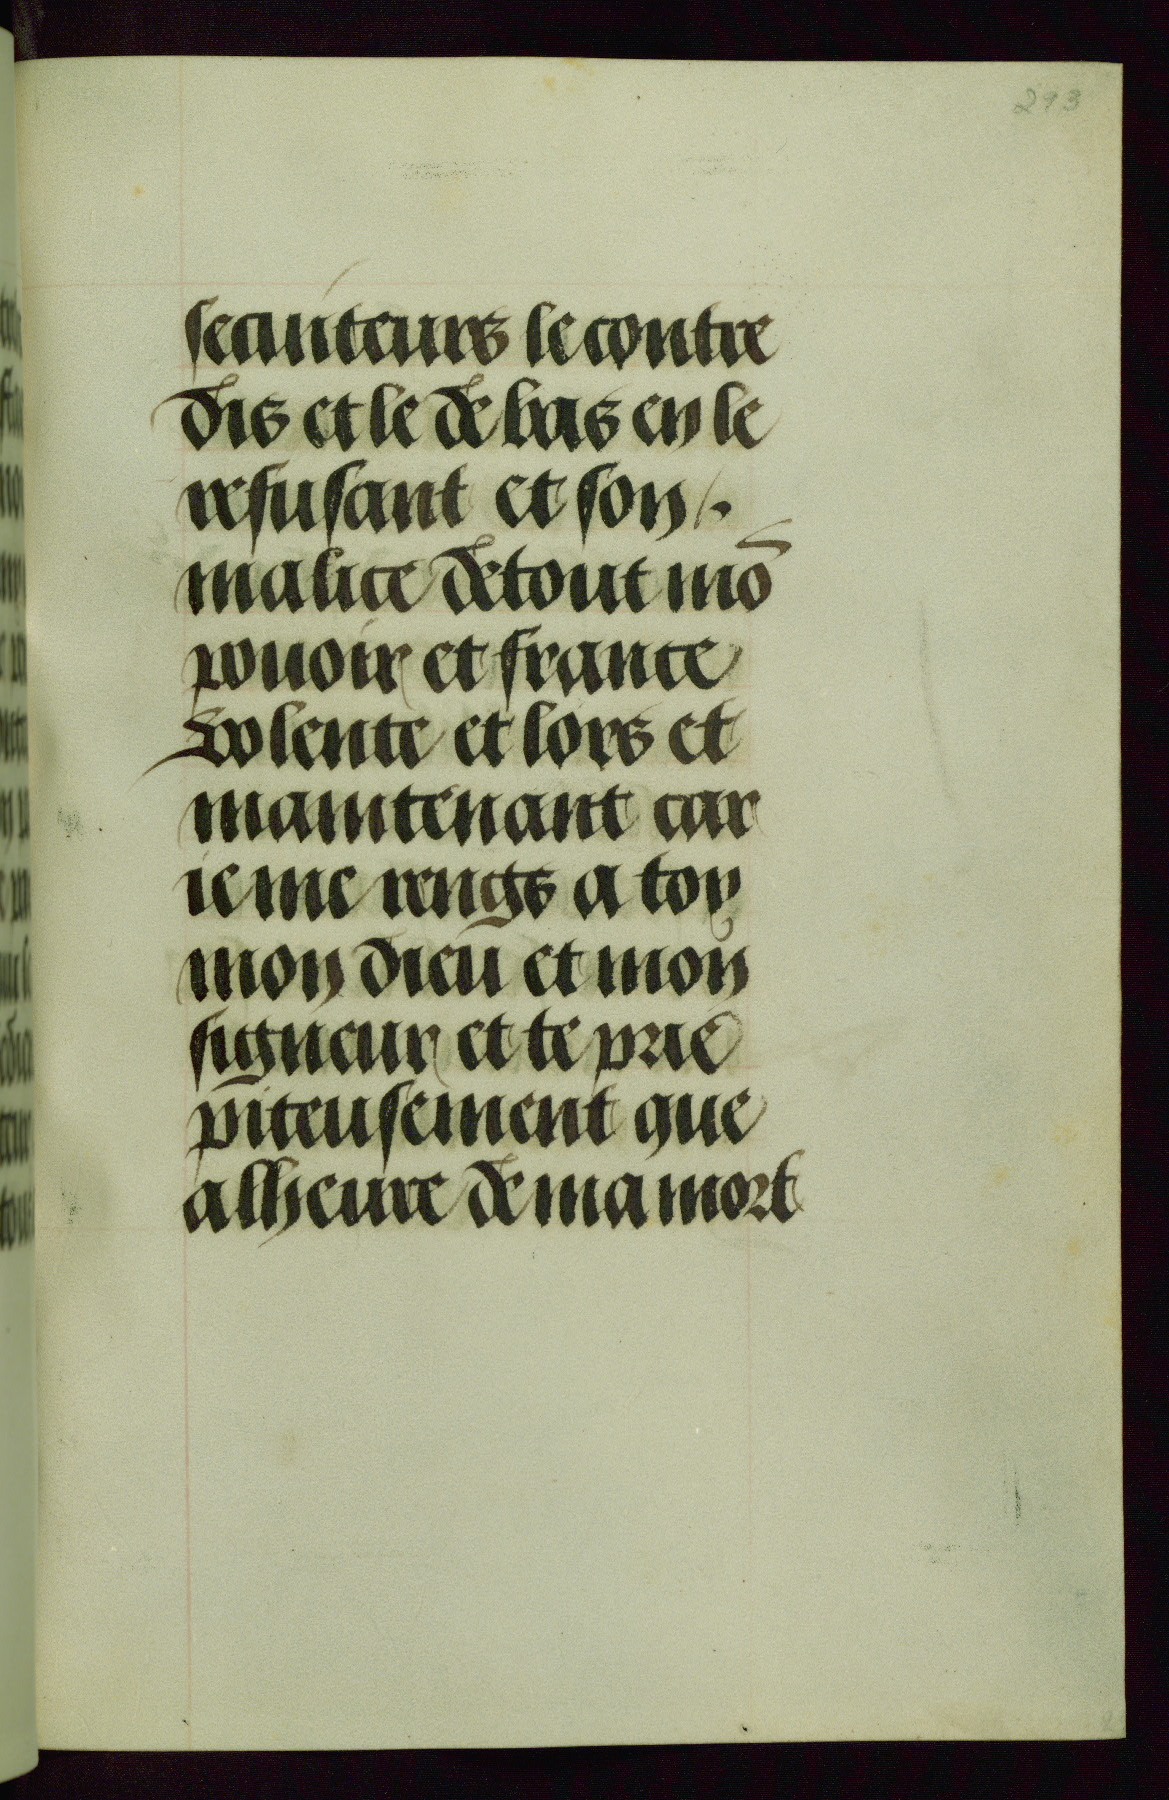 293
secuiteurs le contre
dis et le debas en le
refusant et son
malice de tout mō
pouoir et france
volente et lors et
maintenant car
ie me rengs a toy
mon dieu et mon
signeur et te prie
piteusement que
a lheure de ma mort